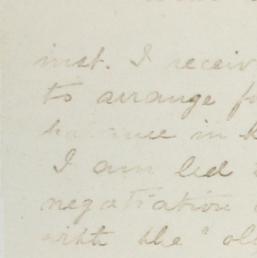 inst. I receiv
to arrange f
balance in
I am led
negotiation
with the "ol